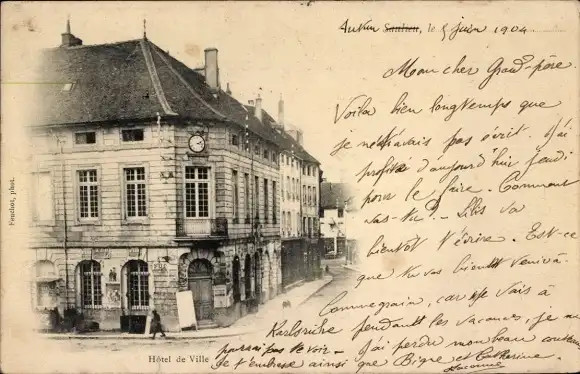 Autun Saulieu, le 5 juin 1904
Mon cher Grand-père.
Voila bien longtemps que
je ne t'avais pas écrit. J'ai
profité d'aujourd'hui jeudi
pour le faire. Comment
vas-tu? - Lilis va
bientôt t'écrire. Est-ce
que tu vas bientôt venir à
car je vais à
Karlsruhe pendant les vacances, je ne
pourrai pas te voir - J'ai perdu mon beau
Je t'embrasse ainsi que Bigne et Catherine.
Hôtel de Ville
phot.